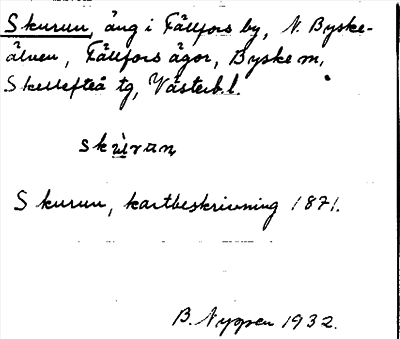 Skurun, äng i Fällfors by, N. Byske-
älven, Fällfors ägor, Byske m,
Skellefteå tg, Västerb.l.
Skurun, kartbeskrivning 1871.
B. Nygren 1932.